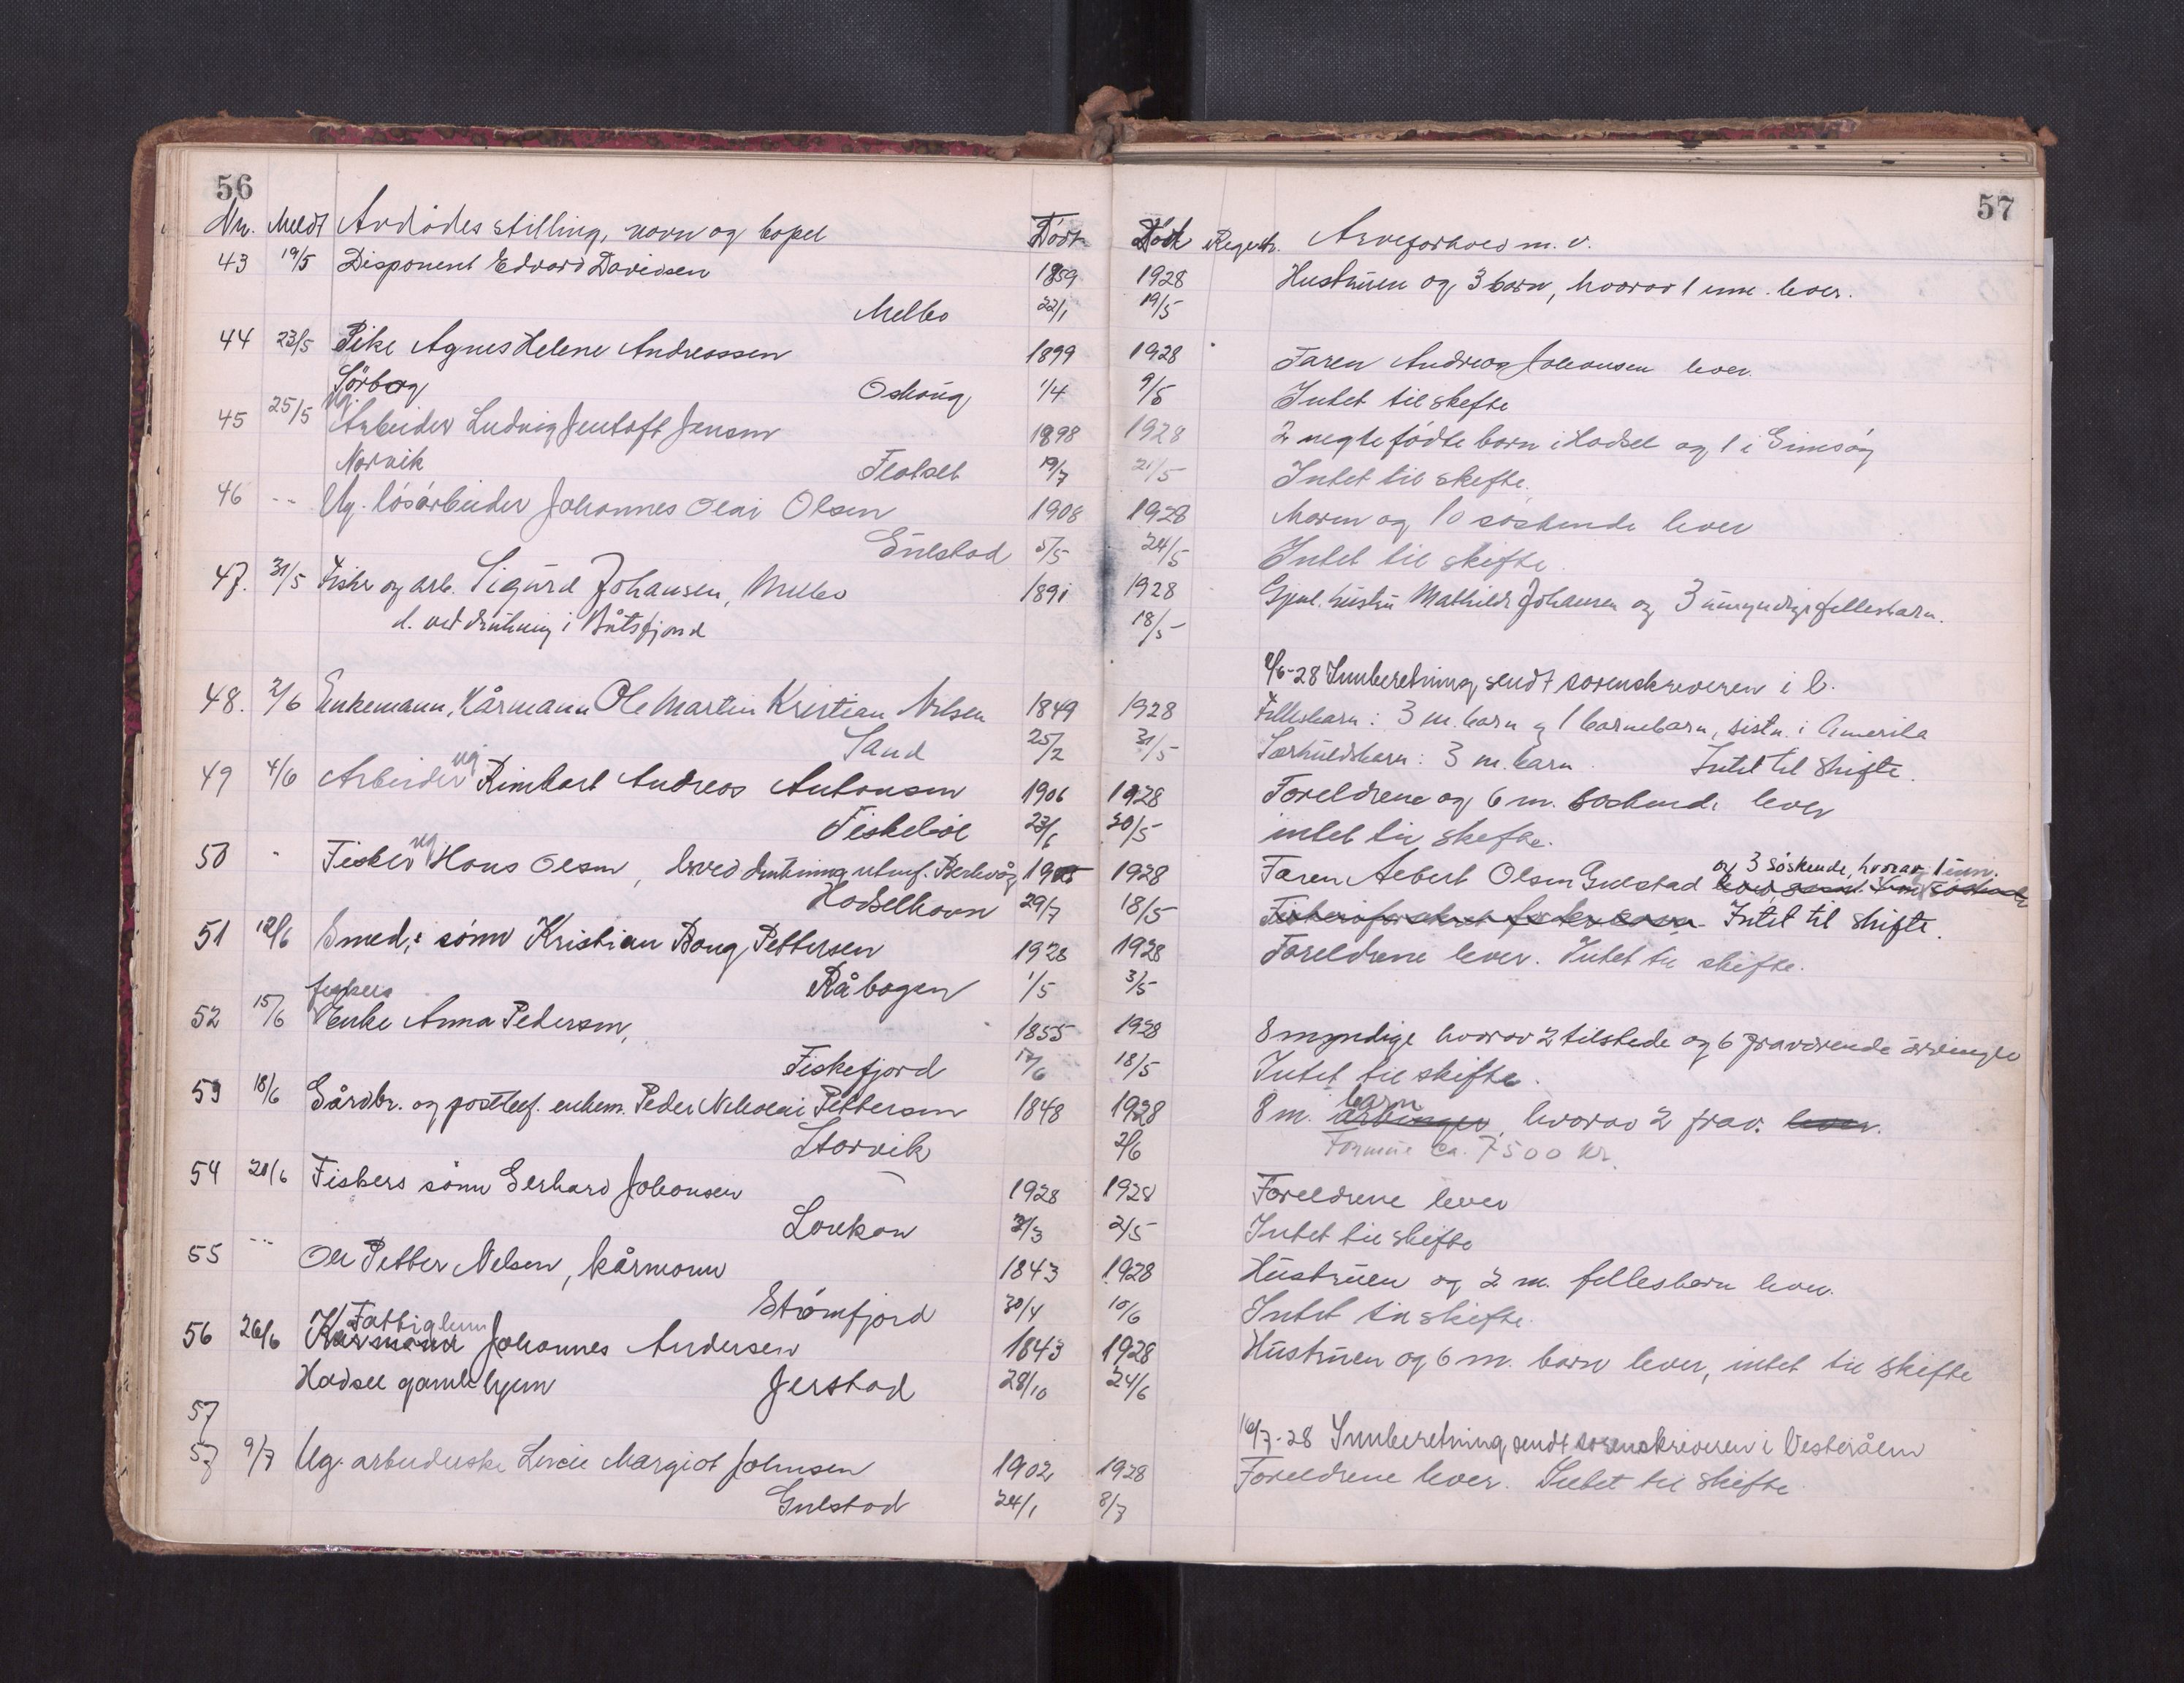 56
57
Nr. Meldt Avdødes stilling, navn og bopel Født Død Registr. Arveforhold m. v.
43 19/5 Disponent Edvard Davidsen 1859 1928 Hustruen og 3 barn, hvorav 1 lever.
Melbo 22/1 19/5
44 23/5 Pike Agnes Helene Andreassen 1899 1928 Faren Andreas Johansen lever.
Sørborg Oshaug 1/4 9/5 Intet til skifte
45 25/5 Ug. Arbeider Ludvig Jentoft Jensen 1898 1928 2 uegtefødte barn i Hadsel og 1 i Gimsøy
Narvik Flatset 19/7 21/5 Intet til skifte.
46 -- Ug. løsarbeider Johannes Olai Olsen 1908 1928 Moren og 10 søskende lever
Gulstad 5/5 24/5 Intet til skifte.
47. 31/5 Fisker og arb. Sigurd Johansen, Melbo 1891 1928 Gjenl. hustru Mathilde Johansen og 3 umyndige fellesbarn.
d. ved drukning i Båtsfjord 18/5
2/6-28 Innberetning sendt sorenskriveren i V.
48. 2/6 Enkemann, Kårmann Ole Martin Kristian Nilsen 1849 1928 Fellesbarn: 3 m. barn og 1 barnebarn, sistn. i Amerika
Sand 25/2 31/5 Særkuldsbarn: 3 m. barn. Intet til skifte.
49 4/6 Arbeider ug. Rimbart Andreas Antonsen 1906 1928 Foreldrene og 6 m. søskende lever
Fiskebøl 23/6 30/5 intet til skifte.
50 - Fisker ug. Hans Olsen, død ved drukning utenf. Berlevåg 1905 1928 Faren Albert Olsen Gulstad og 3 søskende, hvorav 1 um.
Hadselhavn 29/7 18/5 Intet til skifte.
51 12/6 Smed, sønn Kristian Boug Pettersen 1928 1928 Foreldrene lever. Intet til skifte.
Råbogen 1/5 3/5
52 15/6 fiskers Enke Anna Pedersen, 1855 1928 8 myndige hvorav 2 tilstede og 6 fraværende arvinger
Fiskefjord 17/6 18/5 Intet til skifte.
53 18/6 Gårdbr. og posteksp. enkem. Peder Nikolai Pettersen 1848 1928 8 m. arvinger barn, hvorav 2 frav. lever.
Storvik 2/6 Formue ca. 7500 kr.
54 20/6 Fiskers sønn Gerhard Johansen 1928 1928 Foreldrene lever
Lonkan 31/3 2/5 Intet til skifte
55 -- Ole Petter Nelsen, kårmann 1843 1928 Hustruen og 2 m. fellesbarn lever.
Strømfjord 30/4 10/6 Intet til skifte.
56 26/6 Kårmann Fattiglem Johannes Andersen 1843 1928 Hustruen og 6 m. barn lever, intet til skifte
Hadsel gamlehjem Jerstad 28/10 24/6
57
16/7-28 Innberetning sendt sorenskriveren i Vesterålen
57 9/7 Ug. arbeiderske Lucie Margiot Johnsen 1902 1928 Foreldrene lever. Intet til skifte
Gulstad 24/1 8/7